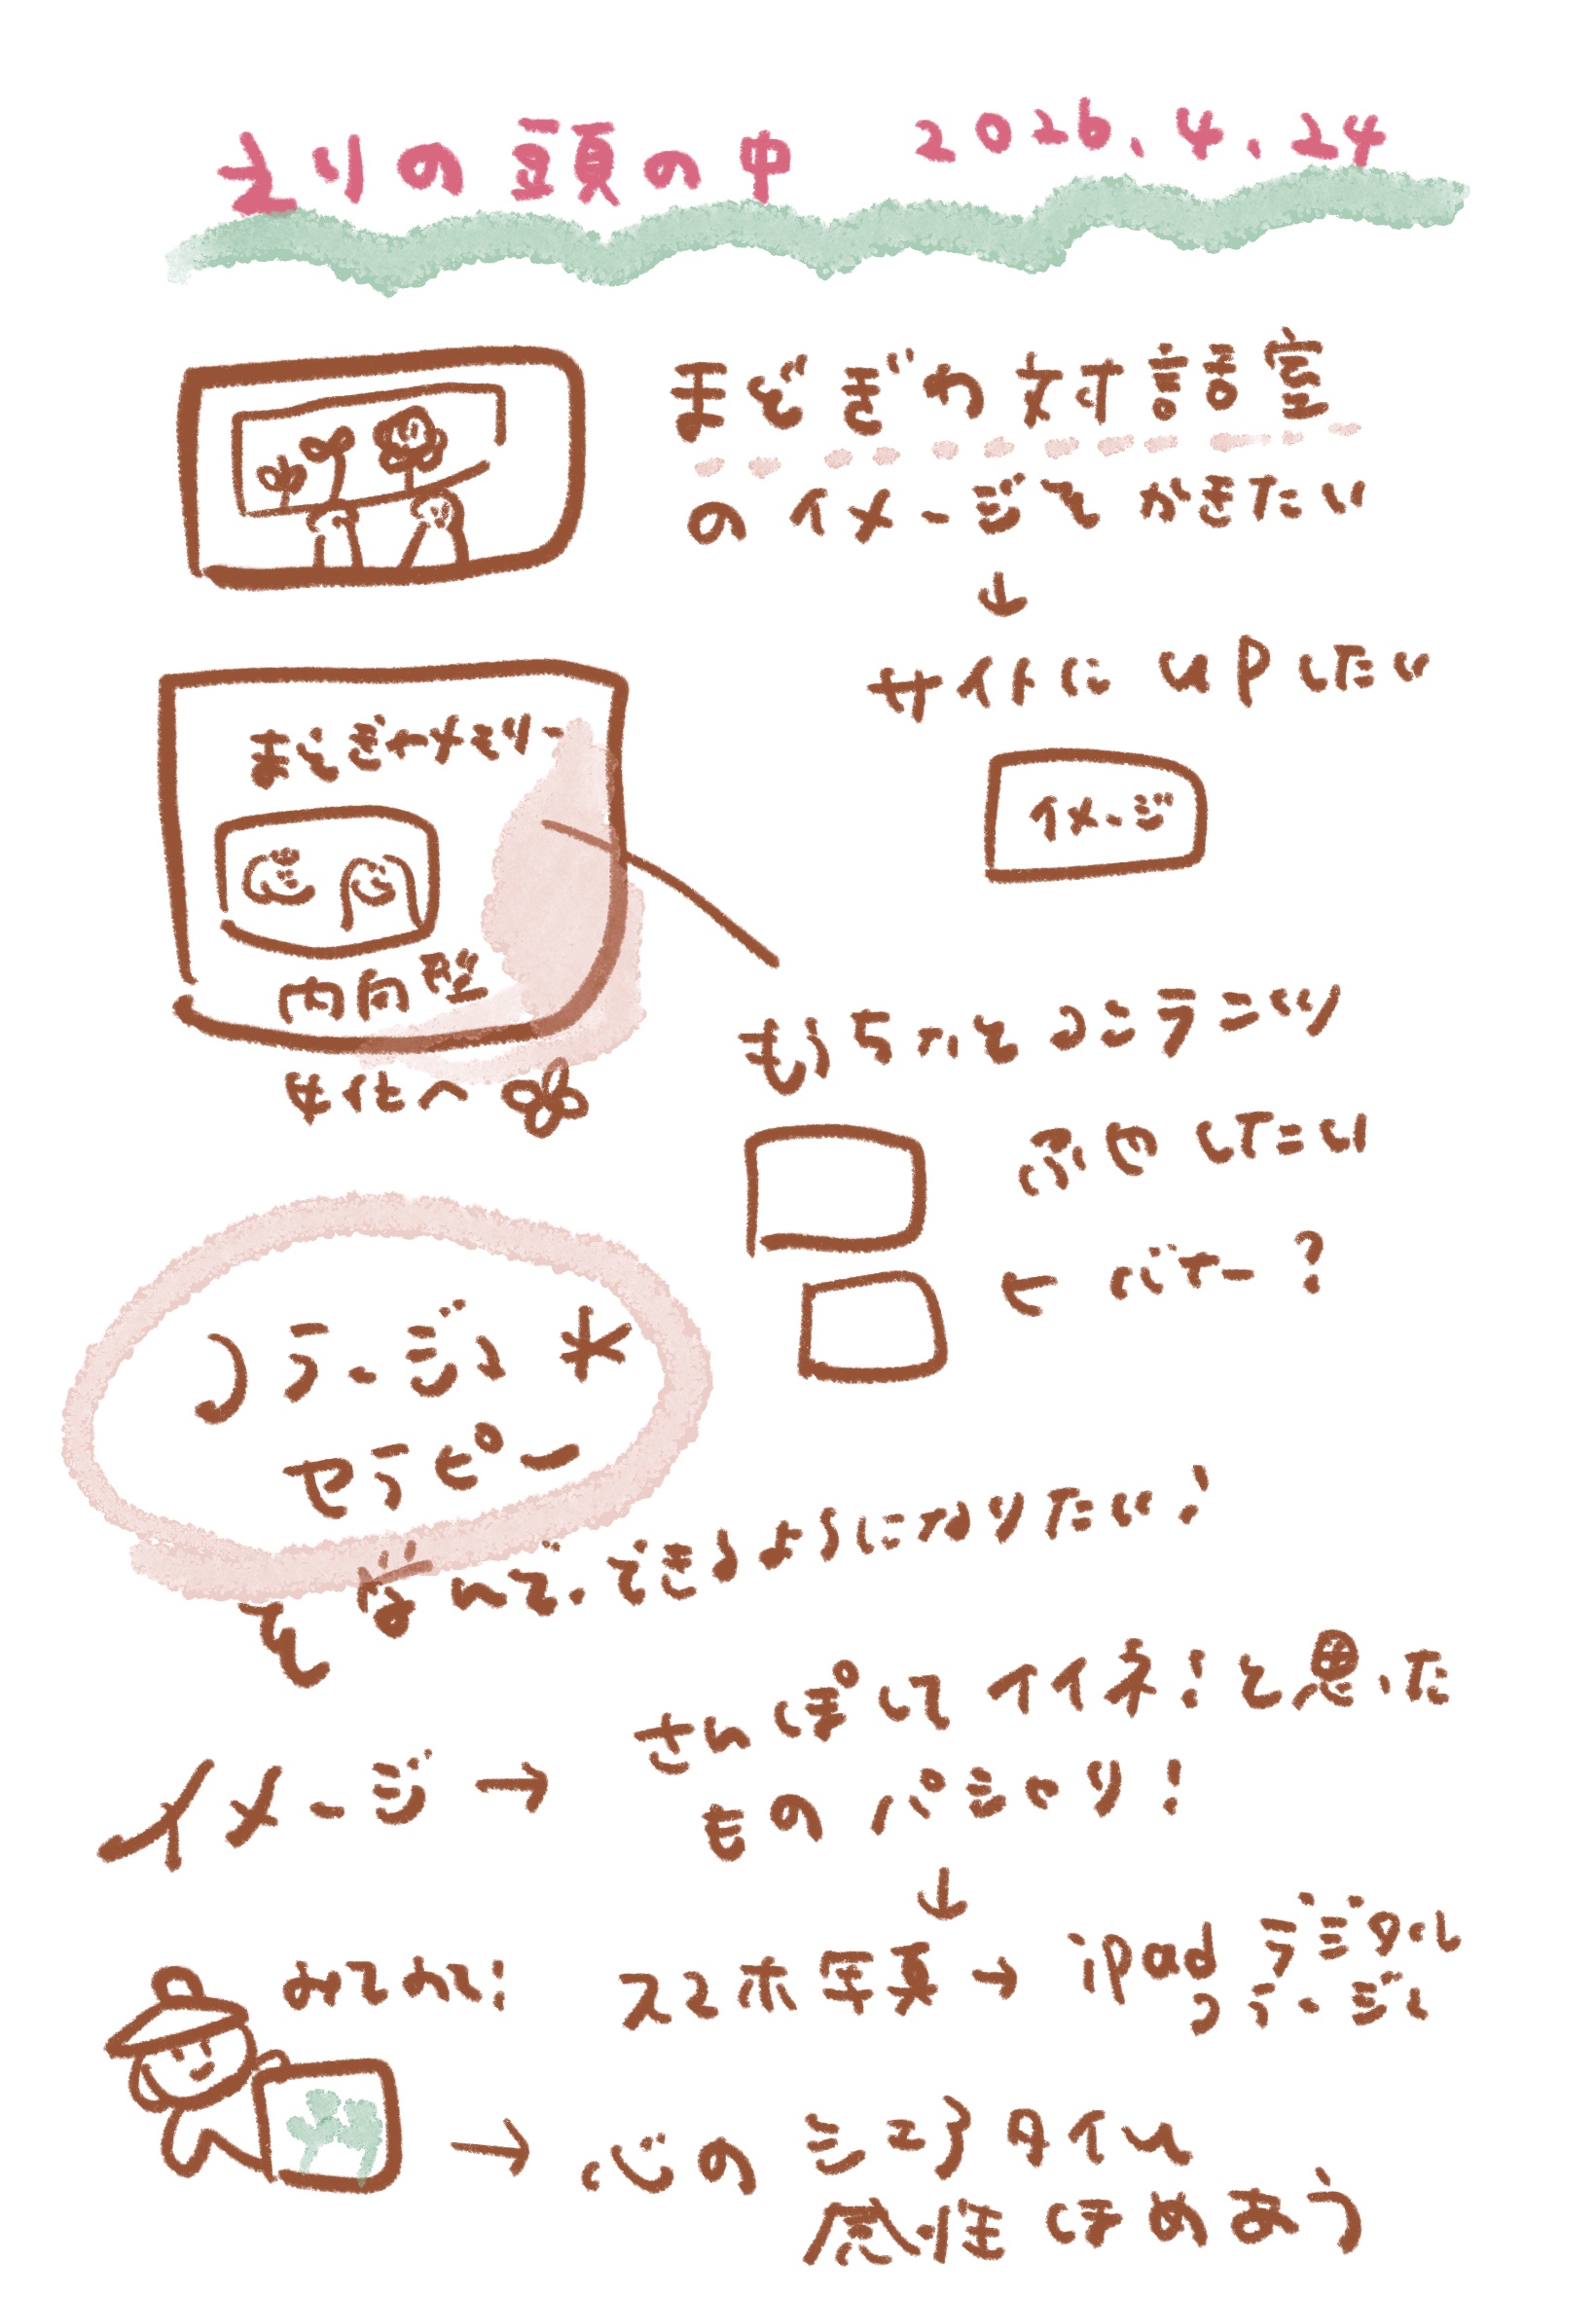 えりの頭の中 2026.4.24
まどぎわ対話室
のイメージをかきたい
↓
サイトにUPしたい
イメージ
まどぎわメモリー
内向型
女化へ
もうちょっとコンテンツ
ふやしたい
← バナー?
コラージュ*
セラピー
を学んで、できるようになりたい!
イメージ → さんぽしてイイネ!と思った
ものパシャリ!
↓
みてみて! スマホ写真 → ipad デジタル
コラージュ
→ 心のシェアタイム
感性ほめあう